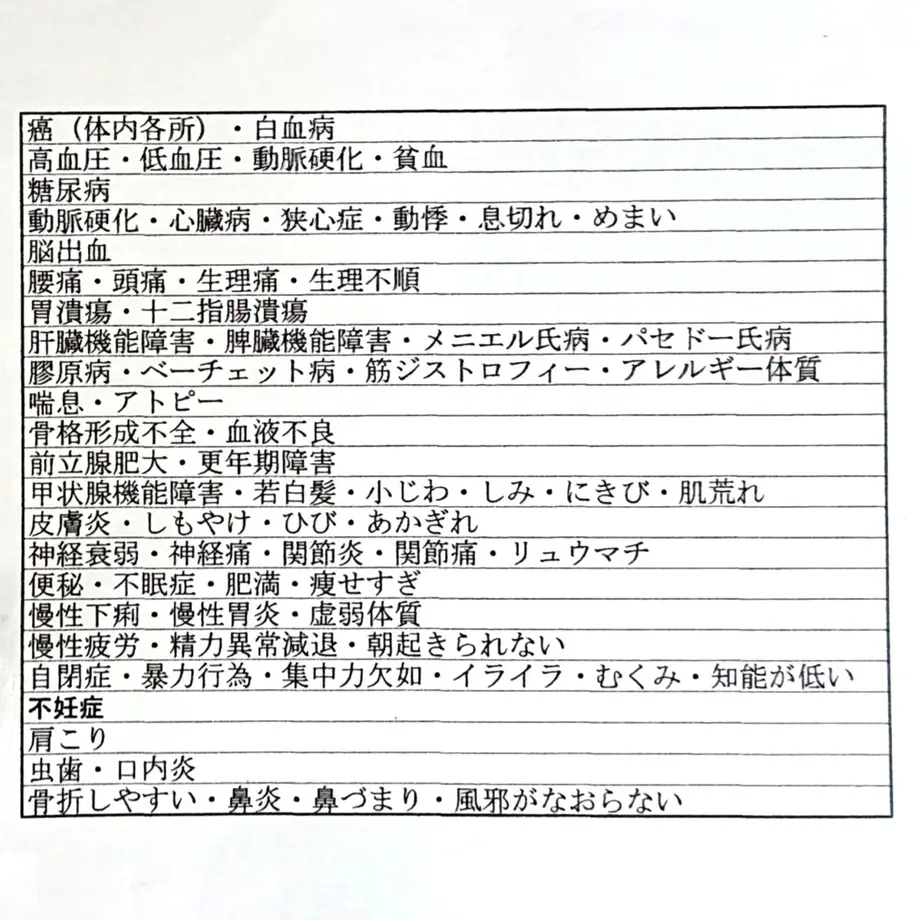 癌（体内各所）・白血病
高血圧・低血圧・動脈硬化・貧血
糖尿病
動脈硬化・心臓病・狭心症・動悸・息切れ・めまい
脳出血
腰痛・頭痛・生理痛・生理不順
胃潰瘍・十二指腸潰瘍
肝臓機能障害・脾臓機能障害・メニエル氏病・パセドー氏病
膠原病・ベーチェット病・筋ジストロフィー・アレルギー体質
喘息・アトピー
骨格形成不全・血液不良
前立腺肥大・更年期障害
甲状腺機能障害・若白髪・小じわ・しみ・にきび・肌荒れ
皮膚炎・しもやけ・ひび・あかぎれ
神経衰弱・神経痛・関節炎・関節痛・リュウマチ
便秘・不眠症・肥満・痩せすぎ
慢性下痢・慢性胃炎・虚弱体質
慢性疲労・精力異常減退・朝起きられない
自閉症・暴力行為・集中力欠如・イライラ・むくみ・知能が低い
不妊症
肩こり
虫歯・口内炎
骨折しやすい・鼻炎・鼻づまり・風邪がなおらない